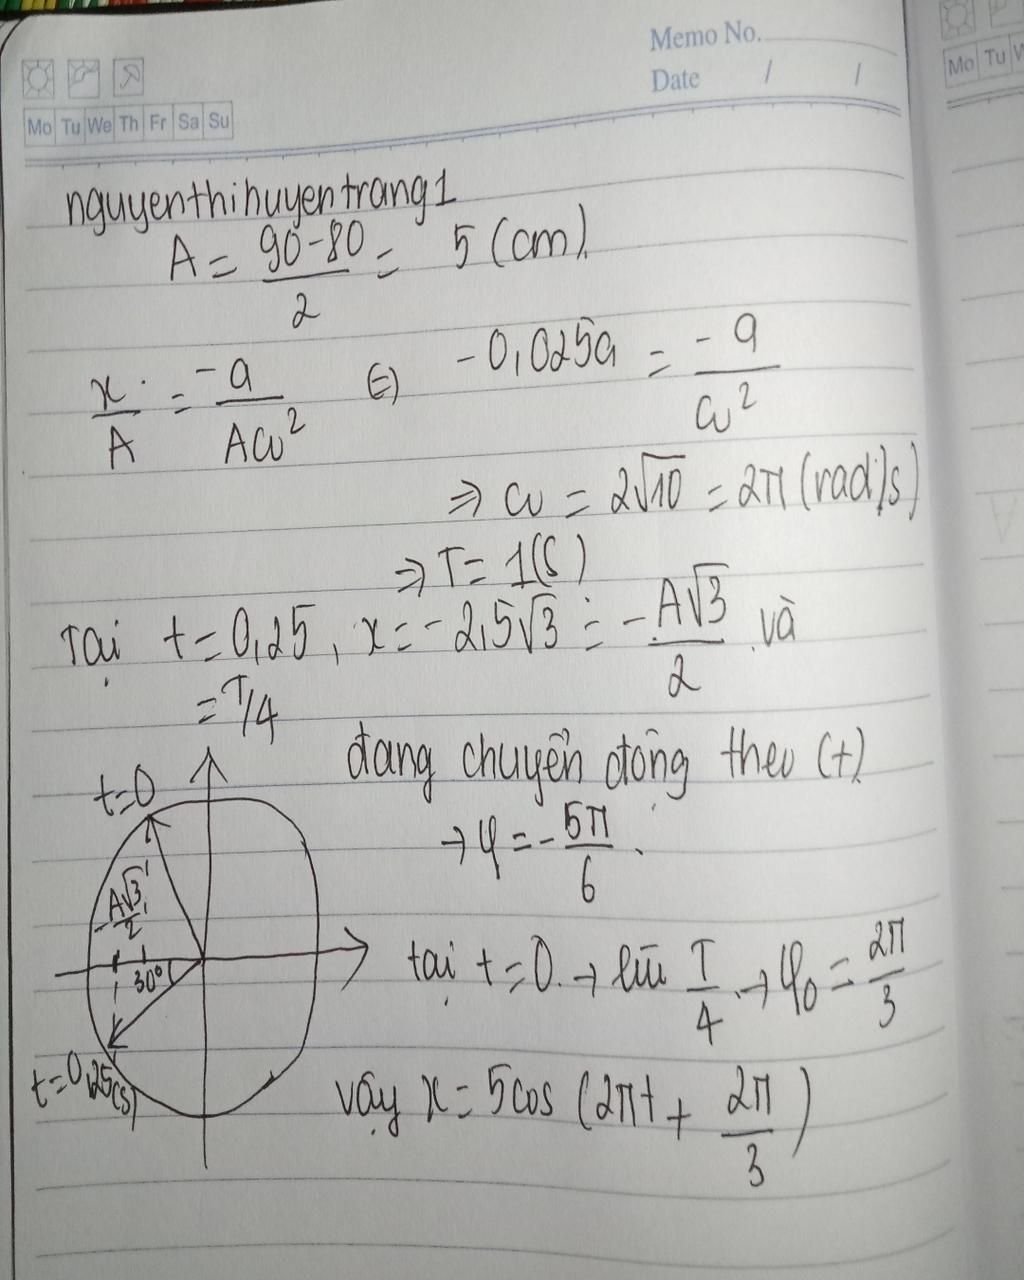 Memo No.
Date / /
Mo Tu We Th Fr Sa Su
Mo Tu W
nguyenthihuyentrang1
A = (90-80)/2 = 5 (cm)
x/A = -a/Aω² (=) -0,025a = -a/ω²
⇒ ω = 2√10 = 2π (rad/s)
⇒ T = 1(s)
Tại t = 0,25, x = -2,5√3 = -A√3/2 và
= T/4
đang chuyển động theo (+)
→ φ = -5π/6.
t=0
-A√3/2
30°
t=0,25(s)
tại t = 0. → lùi T/4 → φ₀ = 2π/3
vậy x = 5cos (2πt + 2π/3)